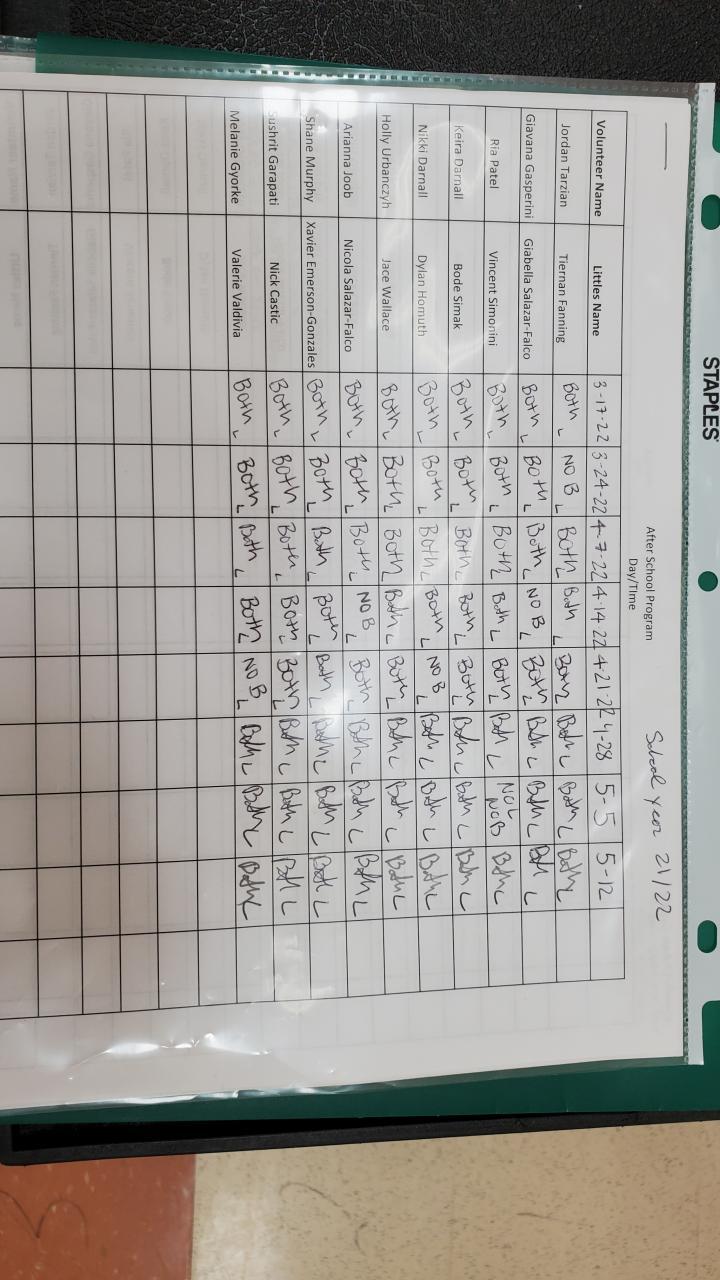 STAPLES
After School Program
Day/Time
School year 21/22
Volunteer Name Littles Name 3-17-22 3-24-22 4-7-22 4-14 22 4-21-22 4-28 5-5 5-12
Jordan Tarzian Tiernan Fanning Both L NO B L Both L Both L Both L Both L Both L Both L
Giavana Gasperini Giabella Salazar-Falco Both L Both L Both L NO B L Both L Both L Both L Both L
Ria Patel Vincent Simonini Both L Both L Both L Both L Both L Both L NO L NO B Both L
Keira Darnall Bode Simak Both L Both L Both L Both L Both L Both L Both L Both L
Nikki Darnall Dylan Homuth Both L Both L Both L Both L NO B L Both L Both L Both L
Holly Urbanczyh Jace Wallace Both L Both L Both L Both L Both L Both L Both L Both L
Arianna Joob Nicola Salazar-Falco Both L Both L Both L NO B L Both L Both L Both L Both L
Shane Murphy Xavier Emerson-Gonzales Both L Both L Both L Both L Both L Both L Both L Both L
Sushrit Garapati Nick Castic Both L Both L Both L Both L Both L Both L Both L Both L
Melanie Gyorke Valerie Valdivia Both L Both L Both L Both L NO B L Both L Both L Both L